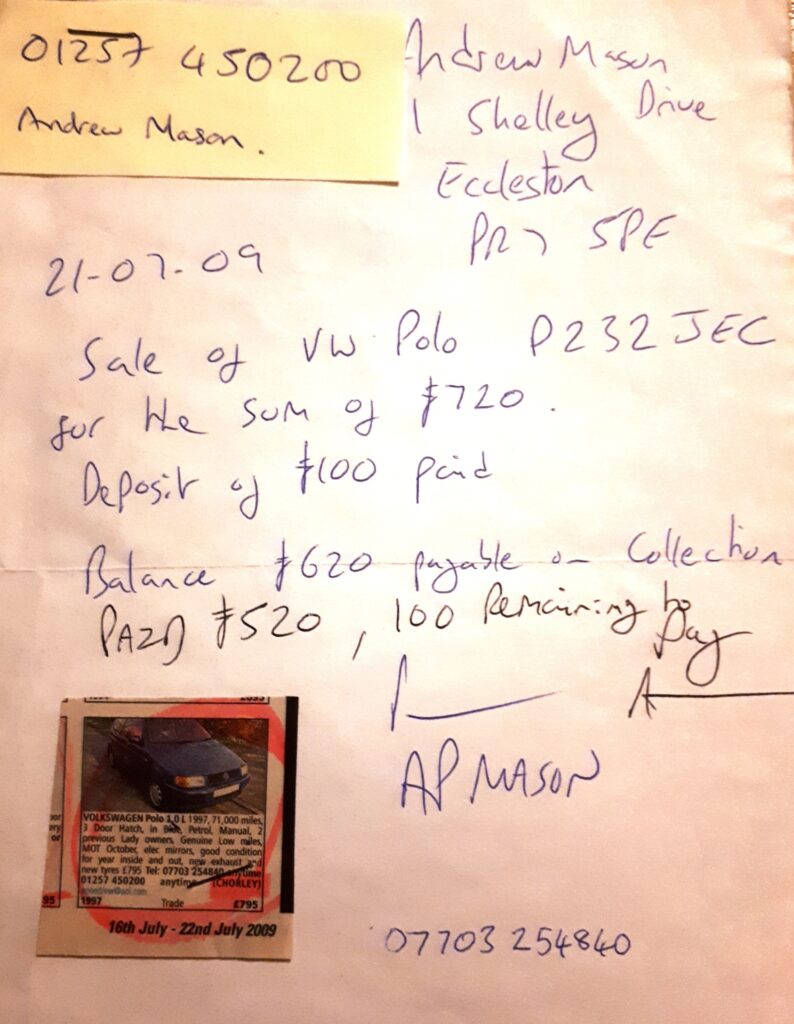 01257 450200
Andrew Mason.
Andrew Mason
1 Shelley Drive
Eccleston
PR7 5PE
21-07-09
Sale of VW Polo P232 JEC
for the sum of £720.
Deposit of £100 paid
Balance £620 payable on Collection
PAID £520, 100 Remaining to
Pay
AP MASON
VOLKSWAGEN Polo 1.0 L 1997, 71,000 miles,
3 Door Hatch, in Blue, Petrol, Manual, 2
previous Lady owners, Genuine Low miles,
MOT October, elec mirrors, good condition
for year inside and out, new exhaust and
new tyres £795 Tel: 07703 254840 anytime
01257 450200 anytime (CHORLEY)
1997 Trade £795
16th July - 22nd July 2009
07703 254840